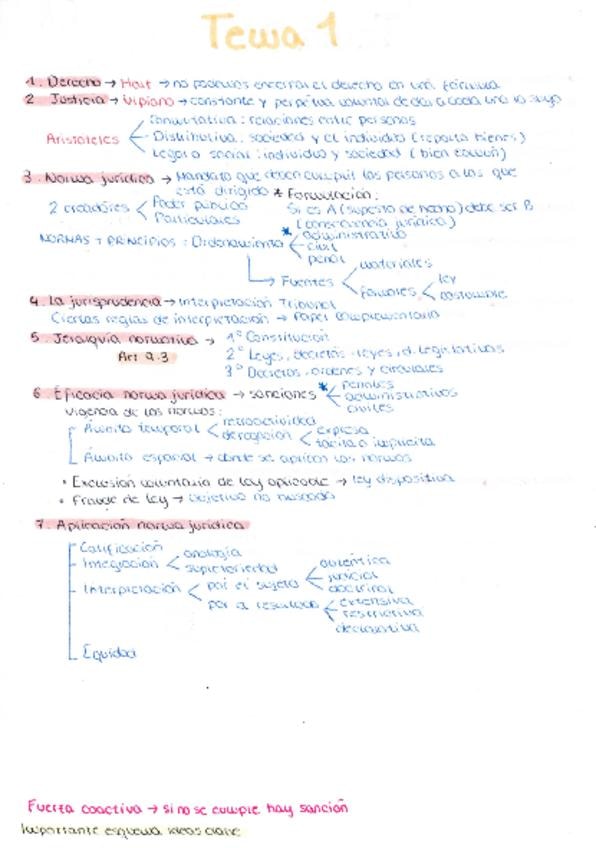 Tema 1
1. Derecho → Hart → no podemos encerrar el derecho en una fórmula
2. Justicia → Ulpiano → constante y perpetua voluntad de dar a cada uno lo suyo
Aristóteles
Conmutativa: relaciones entre personas
Distributiva: sociedad y el individuo (reparto bienes)
Legal o social: individuo y sociedad (bien común)
3. Norma jurídica → Mandato que deben cumplir las personas a las que
está dirigido * Formulación:
2 creadores
Poder público
Particulares
Si es A (supuesto de hecho) debe ser B
(consecuencia jurídica)
NORMAS + PRINCIPIOS: Ordenamiento
* administrativo
civil
penal
Fuentes
materiales
formales
ley
costumbre
4. La jurisprudencia → Interpretación Tribunal
Ciertas reglas de interpretación → Papel complementario
5. Jerarquía normativa →
Art 9.3
1º Constitución
2º Leyes, decretos-leyes, d. legislativos
3º Decretos, órdenes y circulares
6. Eficacia norma jurídica → sanciones
* penales
administrativos
civiles
Vigencia de las normas:
Ámbito temporal
retroactividad
derogación
expresa
tácita o implícita
Ámbito espacial → donde se aplican las normas
• Exclusión voluntaria de ley aplicable → ley dispositiva
• Fraude de ley → objetivo no buscado
7. Aplicación norma jurídica
Calificación
- Integración
analogía
supletoriedad
- Interpretación
por el sujeto
auténtica
judicial
doctrinal
por el resultado
extensiva
restrictiva
declarativa
Equidad
Fuerza coactiva → si no se cumple hay sanción
Importante esquema ideas clave